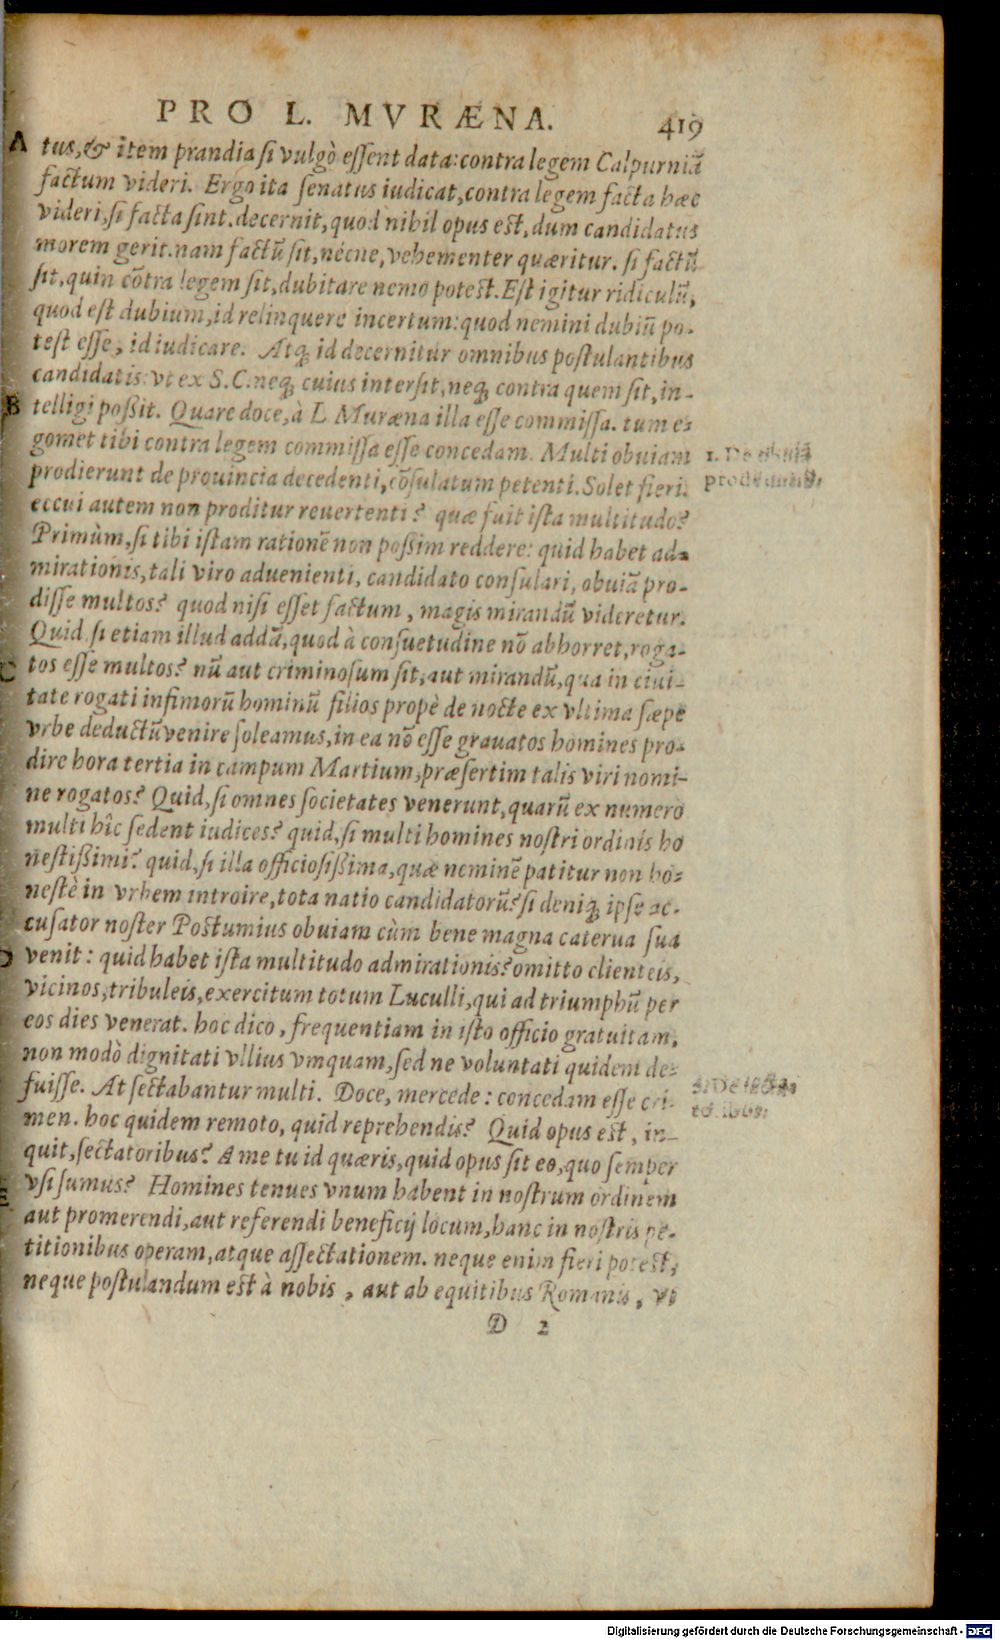 PRO L. MVRÆNA. 419
A tus, & item prandia si vulgò essent data: contra legem Calpurniā
factum videri. Ergo ita senatus iudicat, contra legem facta hæc
videri, si facta sint. decernit, quod nihil opus est, dum candidatus
morem gerit. nam factū sit, nécne, vehementer quæritur. si factū
sit, quin cōtra legem sit, dubitare nemo potest. Est igitur ridiculū,
quod est dubium, id relinquere incertum: quod nemini dubiū po-
test esse, id iudicare. Atq; id decernitur omnibus postulantibus
candidatis: vt ex S.C. neq; cuius intersit, neq; contra quem sit, in-
B telligi poßit. Quare doce, à L Muræna illa esse commissa. tum e-
gomet tibi contra legem commissa esse concedam. Multi obuiam
prodierunt de prouincia decedenti, cōsulatum petenti. Solet fieri.
eccui autem non proditur reuertenti? quæ fuit ista multitudo?
Primùm, si tibi istam rationē non poßim reddere: quid habet ad-
mirationis, tali viro aduenienti, candidato consulari, obuiā pro-
disse multos? quod nisi esset factum, magis mirandū videretur.
Quid si etiam illud addā, quod à consuetudine nō abhorret, roga-
C tos esse multos? nū aut criminosum sit, aut mirandū, qua in ciui-
tate rogati infimorū hominū filios propè de nocte ex vltima sæpe
vrbe deductū venire soleamus, in ea nō esse grauatos homines pro-
dire hora tertia in campum Martium, præsertim talis viri nomi-
ne rogatos? Quid, si omnes societates venerunt, quarū ex numero
multi hîc sedent iudices? quid, si multi homines nostri ordinis ho
nestißimi? quid, si illa officiosißima, quæ neminē patitur non ho-
nestè in vrbem introire, tota natio candidatorū? si deniq; ipse ac-
cusator noster Postumius obuiam cùm bene magna caterua sua
D venit: quid habet ista multitudo admirationis? omitto clienteis,
vicinos, tribuleis, exercitum totum Luculli, qui ad triumphū per
eos dies venerat. hoc dico, frequentiam in isto officio gratuitam,
non modò dignitati vllius vmquam, sed ne voluntati quidem de-
fuisse. At sectabantur multi. Doce, mercede: concedam esse cri-
men. hoc quidem remoto, quid reprehendis? Quid opus est, in-
quit, sectatoribus? A me tu id quæris, quid opus sit eo, quo semper
E vsi sumus? Homines tenues vnum habent in nostrum ordinem
aut promerendi, aut referendi beneficij locum, hanc in nostris pe-
titionibus operam, atque assectationem. neque enim fieri potest,
neque postulandum est à nobis, aut ab equitibus Romanis, vt
D 2
1. De obuiā
Digitalisierung gefördert durch die Deutsche Forschungsgemeinschaft - DFG